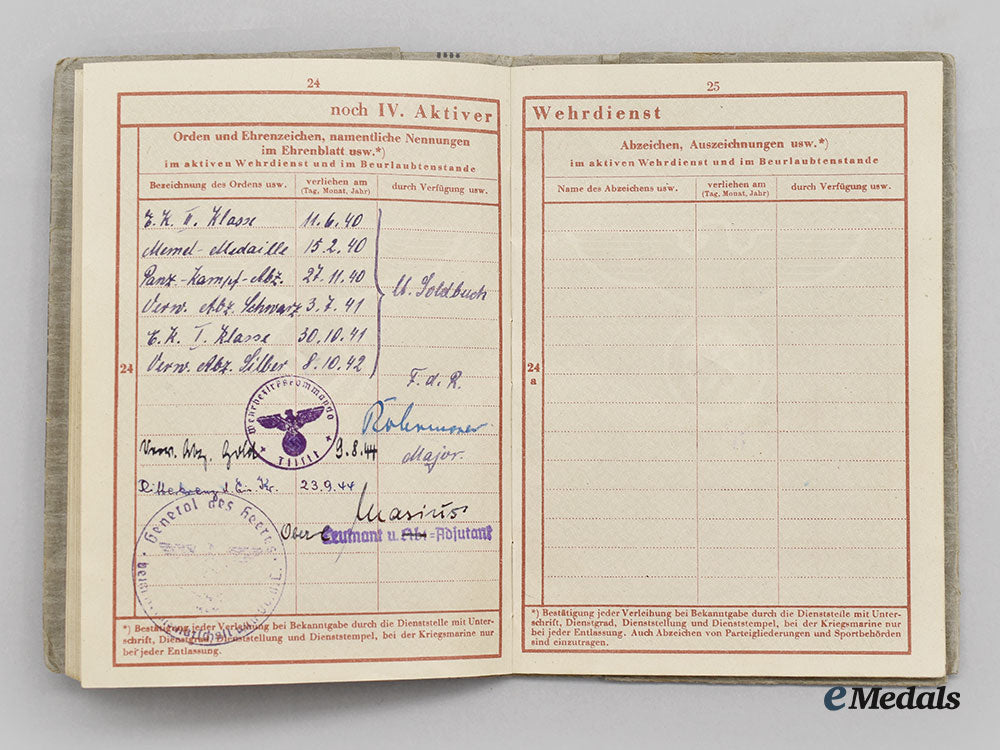 24
noch IV. Aktiver
Orden und Ehrenzeichen, namentliche Nennungen
im Ehrenblatt usw.*)
im aktiven Wehrdienst und im Beurlaubtenstande
Bezeichnung des Ordens usw.
verliehen am
(Tag, Monat, Jahr)
durch Verfügung usw.
E.K. II. Klasse 11.6.40
Memel-Medaille 15.2.40
Panz-Kampf-Abz. 27.11.40
Verw. Abz. Schwarz 3.7.41
lt. Soldbuch
E.K. I. Klasse 30.10.41
Verw. Abz. Silber 8.10.42
24
F.d.R.
Wehrbezirkskommando
Tilsit
Verw. Abz. Gold 9.8.44
Major
Ritterkreuz d. Ei. Kr. 23.9.44
General des Heeres
Ober Leutnant u. Abt-Adjutant
*) Bestätigung jeder Verleihung bei Bekanntgabe durch die Dienststelle mit Unter-
schrift, Dienstgrad, Dienststellung und Dienststempel, bei der Kriegsmarine nur
bei jeder Entlassung.
25
Wehrdienst
Abzeichen, Auszeichnungen usw.*)
im aktiven Wehrdienst und im Beurlaubtenstande
Name des Abzeichens usw.
verliehen am
(Tag, Monat, Jahr)
durch Verfügung usw.
24
a
*) Bestätigung jeder Verleihung bei Bekanntgabe durch die Dienststelle mit Unter-
schrift, Dienstgrad, Dienststellung und Dienststempel, bei der Kriegsmarine nur
bei jeder Entlassung. Auch Abzeichen von Parteigliederungen und Sportbehörden
sind einzutragen.
eMedals